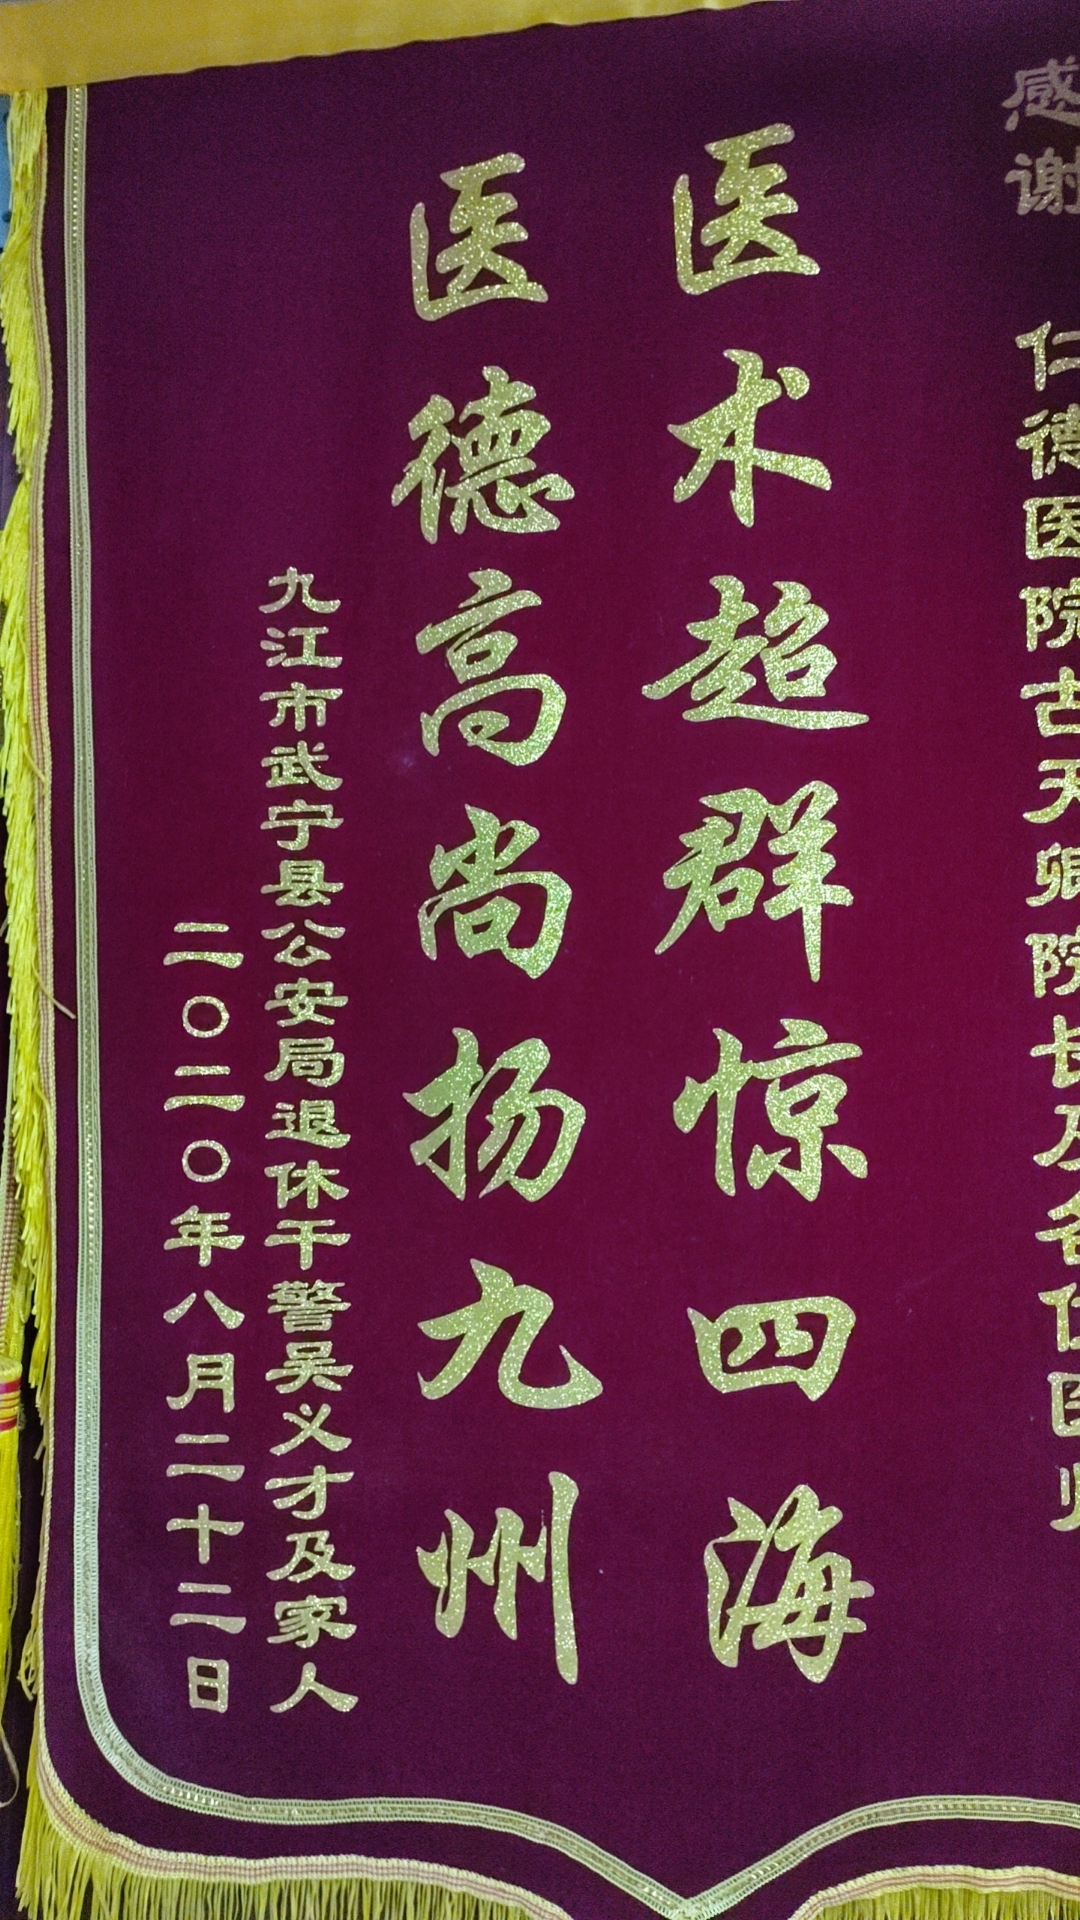 感谢 仁德医院古天卿院长及各位医师
医术超群惊四海
医德高尚扬九州
九江市武宁县公安局退休干警吴义才及家人
二〇二〇年八月二十二日